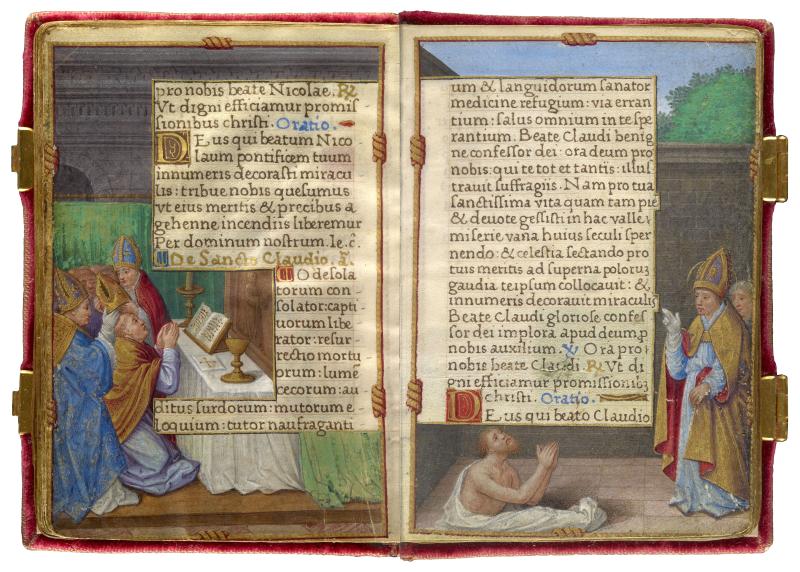 pro nobis beate Nicolae. ℟
Vt digni efficiamur promis
sionibus christi. Oratio.
DEus qui beatum Nico
laum pontificem tuum
innumeris decorasti miracu
lis: tribue nobis quesumus
vt eius meritis & precibus a
gehenne incendiis liberemur
Per dominum nostrum. Ie. c̄.
De Sancto Claudio. ā.
O desola
torum con-
solator: capti
uorum libe
rator: resur-
rectio mortu
orum: lumē
cecorum: au
ditus surdorum: mutorum e-
loquium: tutor naufraganti
um & languidorum sanator
medicine refugium: via erran
tium: salus omnium in te spe
rantium. Beate Claudi benig
ne confessor dei: ora deum pro
nobis: qui te tot et tantis: illus
trauit suffragiis. Nam pro tua
sanctissima vita quam tam pie
& deuote gessisti in hac valle
miserie vana huius seculi sper
nendo: & celestia sectando pro
tuis meritis ad superna poloruz
gaudia teipsum collocauit: &
innumeris decorauit miraculis
Beate Claudi gloriose confes
sor dei implora apud deum p
nobis auxilium. ℣ Ora pro
nobis beate Claudi. ℟ Vt di
gni efficiamur promissionibz
christi. Oratio.
DEus qui beato Claudio